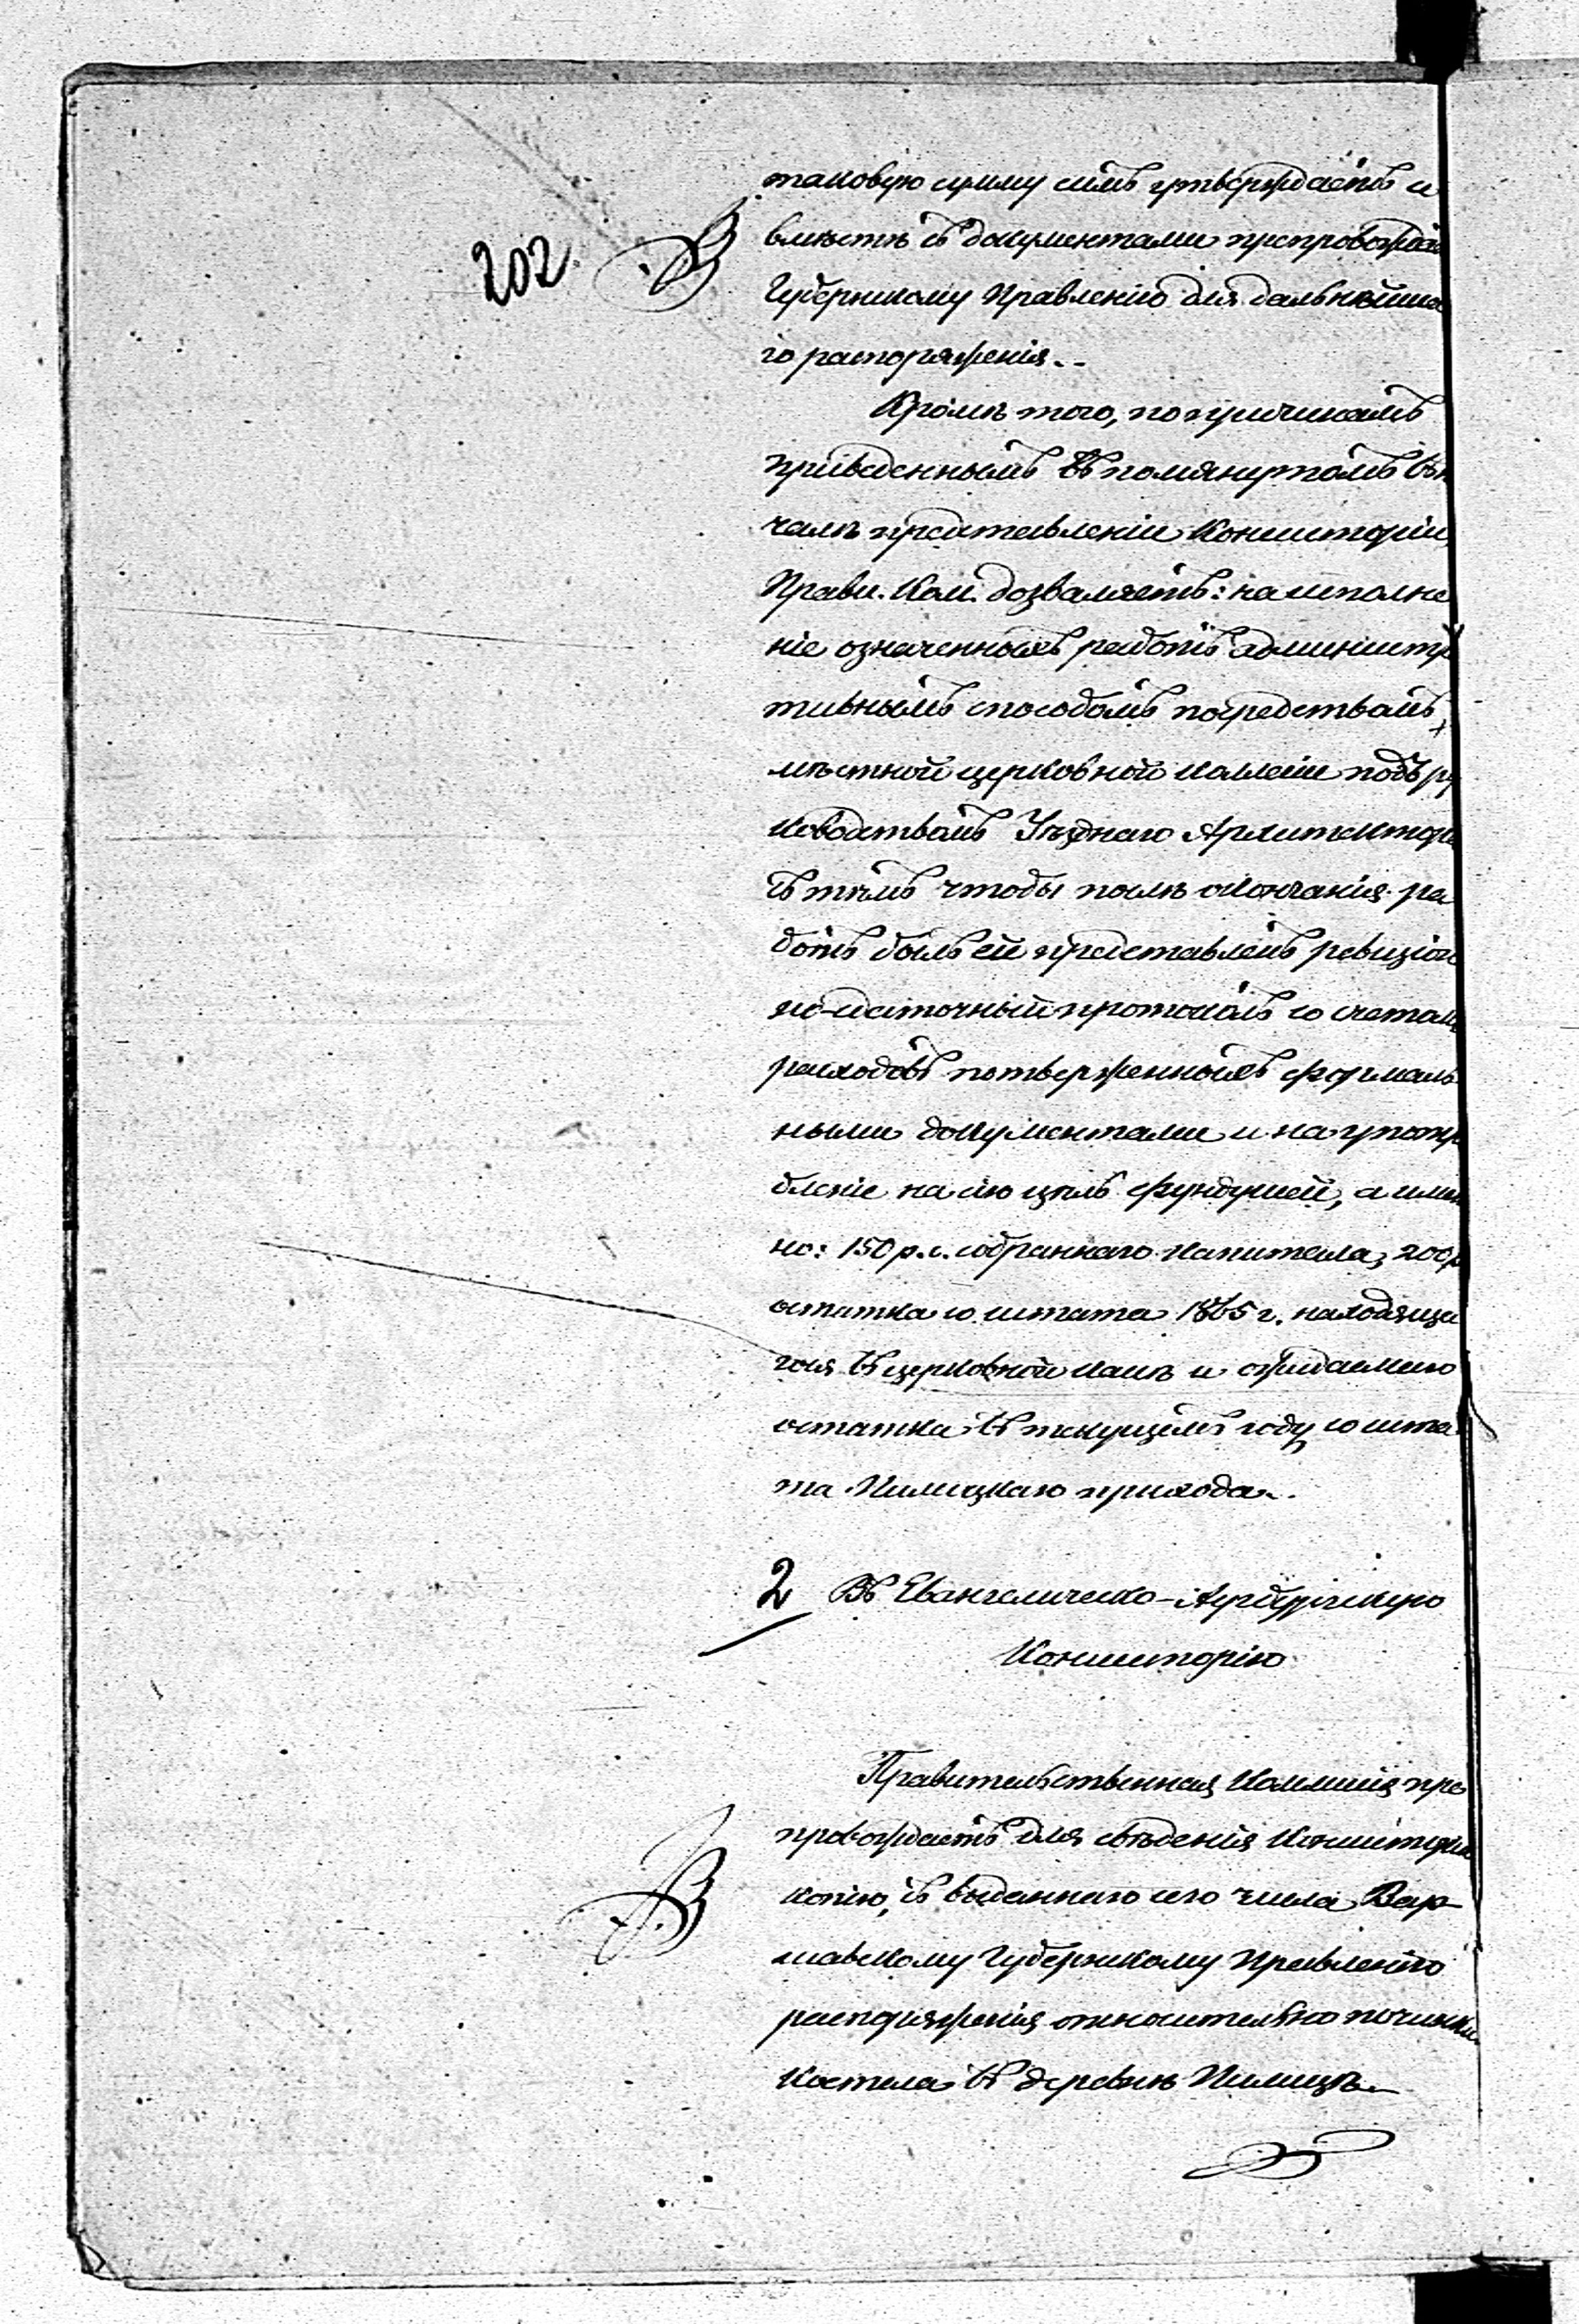 таковую сумму симъ утверждаетъ и
202
вмѣстѣ съ документами препровождая
Губернскому Правленію для дальнѣйша
го распоряженія.
Кромѣ того, по причинамъ
приведеннымъ въ помянутомъ въ на
чалѣ представленіи Консисторіи,
Прави. Ком. дозваляетъ: на исполне
ніе означенныхъ работъ администра
тивнымъ способомъ посредствомъ
мѣстной церковной коллегіи подъ ру
ководствомъ Уѣзднаго Архитектора
съ тѣмъ чтобы послѣ окончанія ра
ботъ былъ ей представленъ ревизіон
но-сдаточный протоколъ со счетами
расходовъ потвержденныхъ формаль
ными документами и на употре
бленіе на сію цѣль фундушей, а имен
но: 150 р. с. собраннаго капитала, 200 р
остатка со штата 1865 г. находяща
гося въ церковной кассѣ и ожидаемаго
остатка въ текущемъ году со шта
та Пилицкаго прихода.
2 Въ Евангелическо-Аугсбургскую
Консисторію
Правительственная Коммисія пре
провождаетъ для свѣденія Консисторіи
копію, съ выданнаго сего числа Вар-
шавскому Губернскому Правленію
распоряженія относительно починки
костела въ деревнѣ Пилицѣ.